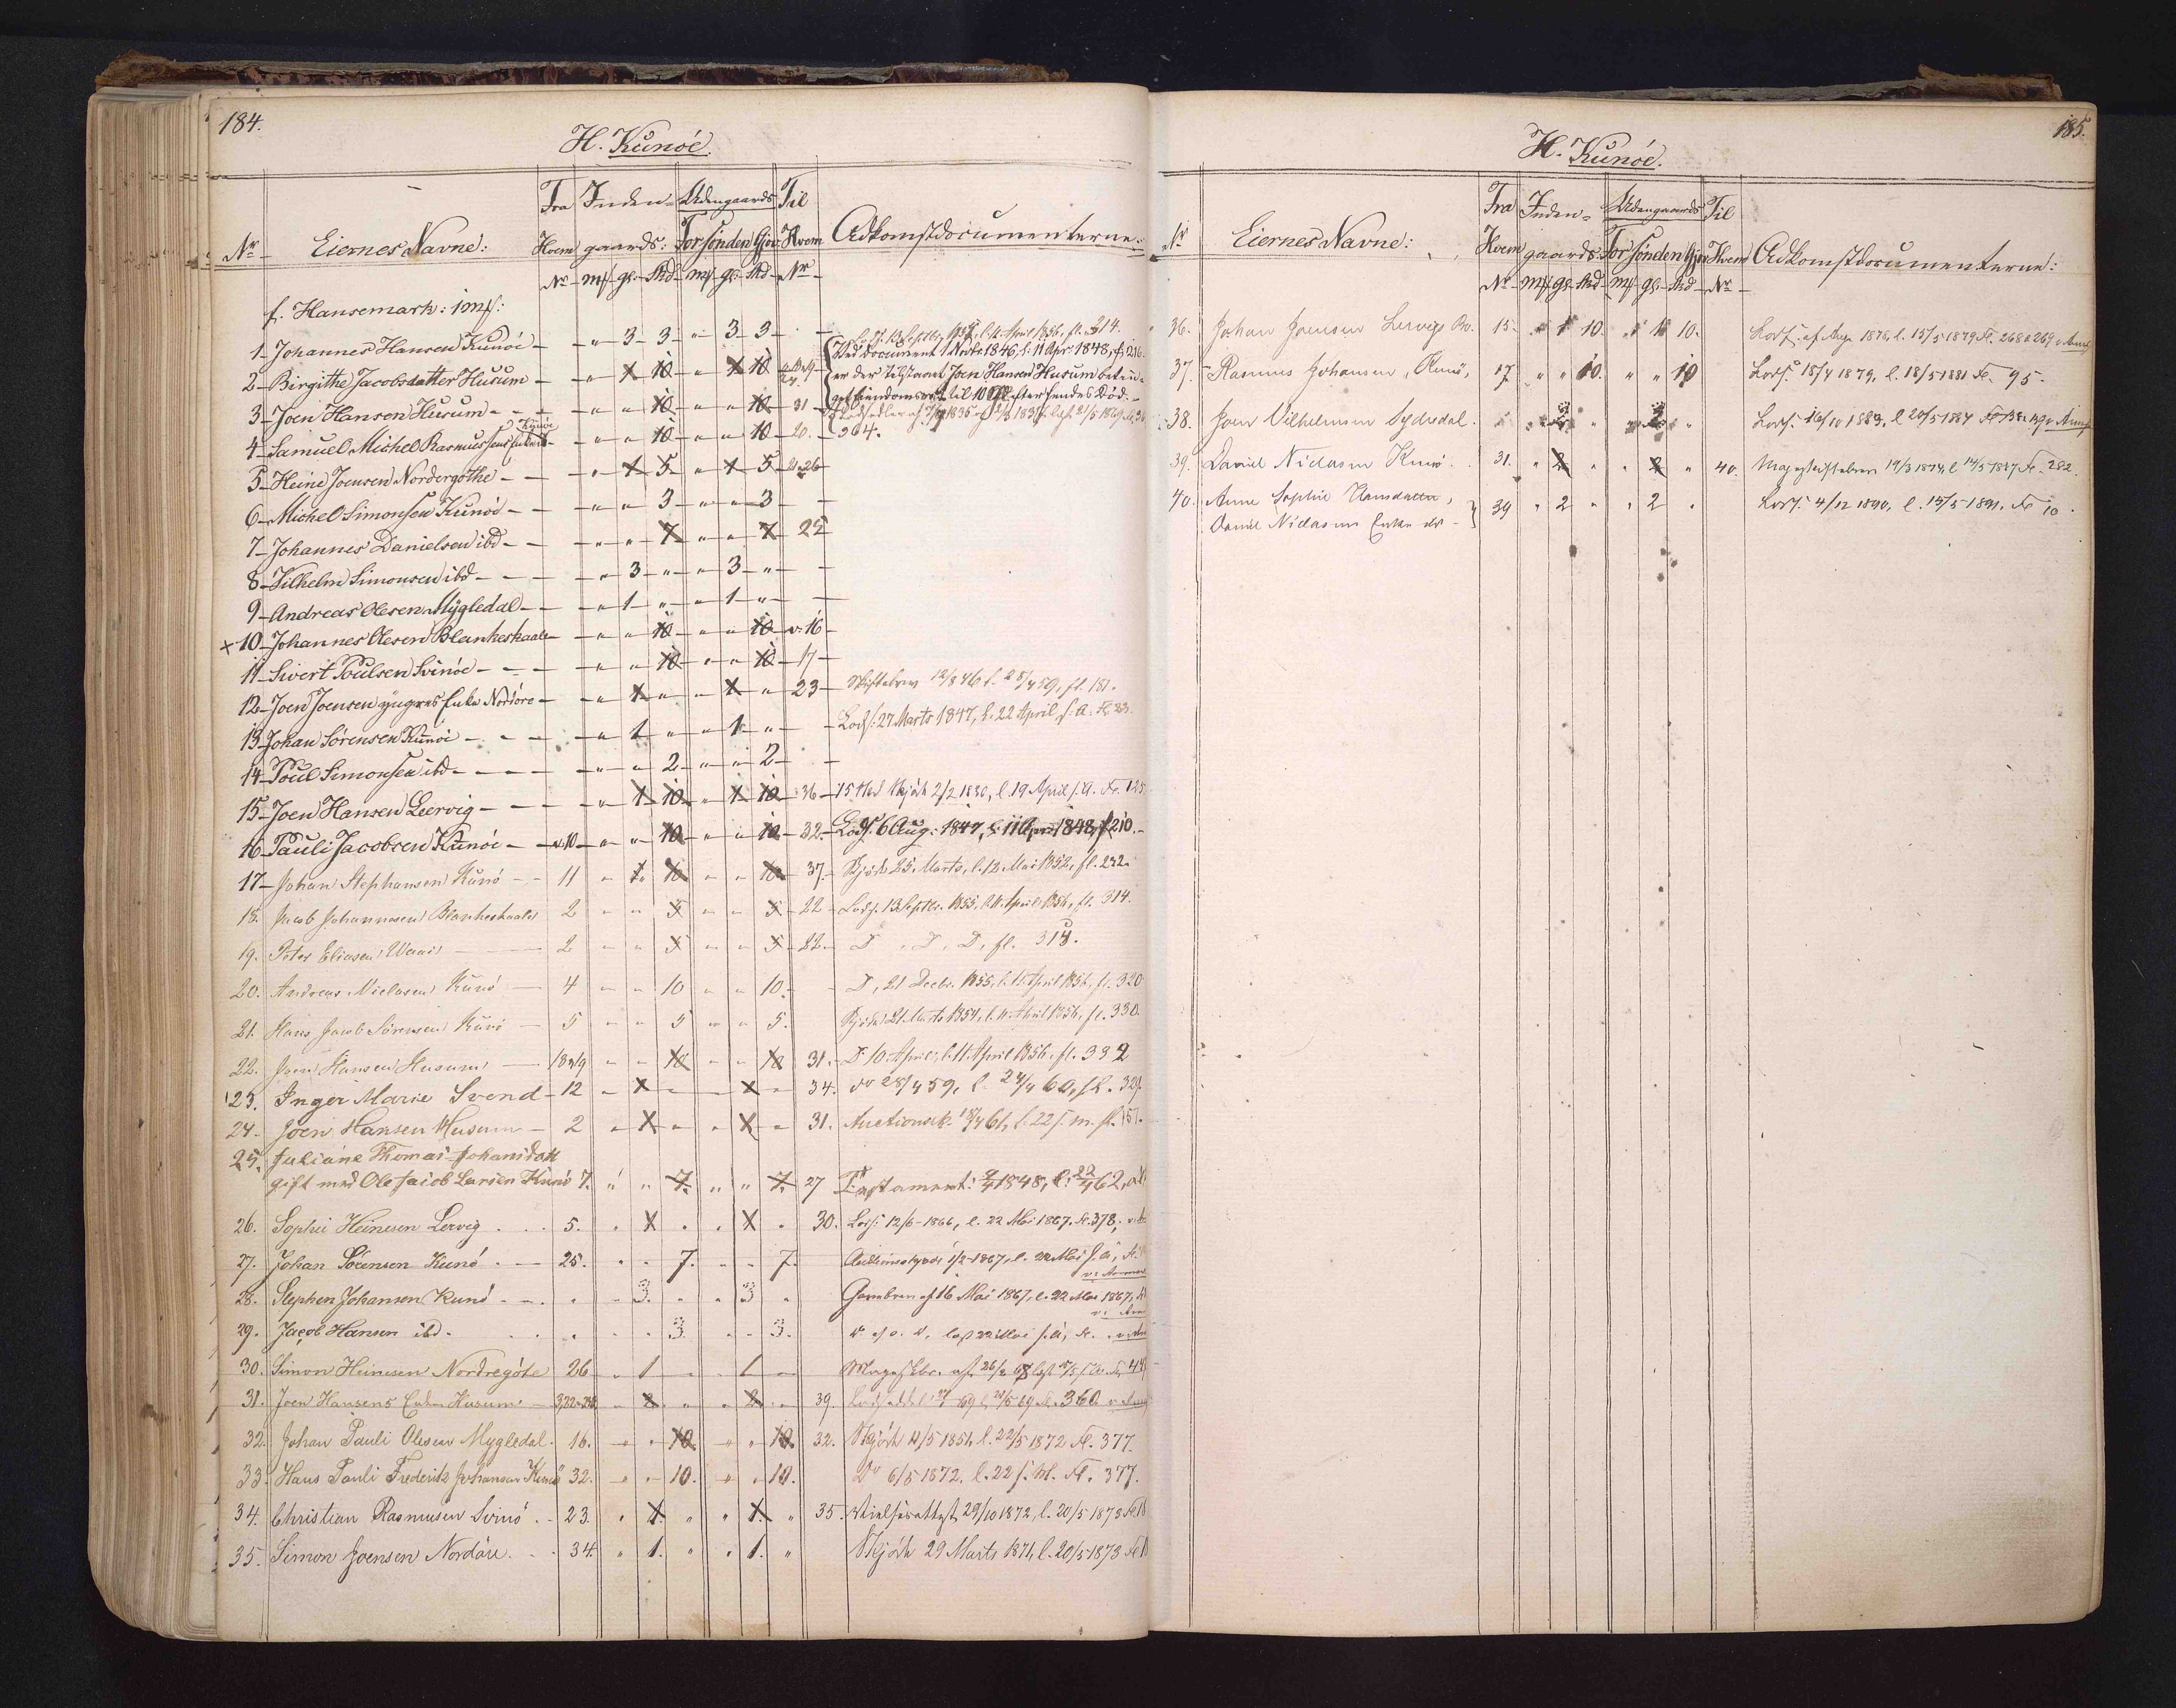 184.
H. Kunöe.
Nr Eiernes Navne: Fra Hvem Nr Inden- gaards: mk gl. Skd Udengaards For sönden Gjov mk gl. Skd Til Hvem Nr Adkomstdocumenterne:
f. Hansemark: 1 mk:
1 Johannes Hansen Kunöe " 3 3 " 3 3
2 Birgithe Jacobsdatter Husum " 1 10 " 1 10
Ved Document 1 Novbr 1846, l. 11 Apr. 1848, f. 216
er der tilstaaet Joen Hansen Husum beten-
get Eiendomsret til 10 Skd. efter hendes Död.
3 Joen Hansen Husum " " 10 " " 10 31
4 Samuel Michel Rasmussens Enke Kunöe " " 10 " " 10 20. 364.
5 Heine Joensen Nordergöthe " 1 5 " 1 5 21 26
6 Michel Simonsen Kunöe " " 3 " " 3
7 Johannes Danielsen ibd " " 7 " " 7 25
8 Vilhelm Simonsen ibd " 3 " " 3 "
9 Andreas Olesen Mygledal " 1 " " 1 "
+ 10 Johannes Olesen Blankeskaale " " 10 " " 10 v. 16
11 Sivert Poulsen Svinöe " " 10 " " 10 17
12 Joen Joensen yngres Enke Nordöre " 1 " " 1 " 23 Skiftebrev 12/8 46 l. 28/4 59, fl. 181.
13 Johan Sörensen Kunöe " 1 " " 1 " Lods: 27 Marts 1847, l. 22 April s. A. Fl. 83.
14 Poul Simonsen ibd " " 2 " " 2
15 Joen Hansen Leervig " 1 10 " 1 10 36 15 Med Skjöde 2/2 1830, l. 19 April s. A. Fl. 125
16 Pauli Jacobsen Kunöe v. 10 " " 10 " " 10 32. Lods. 6 Aug: 1847, l. 11 Apr. 1848, f 210.
17 Johan Stephansen Kunö 11 " 1 10 " " 10 37. Skjöde 25 Marts, l. 12 Mai 1852, fl. 232.
18. Jacob Johannesen Blankeskaale 2 " " 5 " " 5 22 Lods. 13 Septbr. 1855, l. 11 April 1856, fl. 314.
19. Peter Eliasen 2 " " 5 " " 5 22 D, D, D, fl. 318.
20. Andreas Niclasen Kunö 4 " " 10 " " 10. D, 21 Decbr. 1855, l. 11 April 1856, fl. 320
21. Hans Jacob Sörensen Kunö 5 " " 5 " " 5. Skjöde 21 Marts 1854, l. 11 April 1856, fl. 330.
22. Joen Hansen Husum 18 19 " " 10 " " 10 31. D. 10 April, l. 11 April 1856, fl. 332
23. Inger Marie Svend 12 " X " " X " 34. do 28/4 59, l. 24/4 60, fl. 329.
24. Joen Hansen Husum 2 " X " " X " 31. Auctionssk. 18/4 61, l. 22 s. m. fl. 151.
25. Juliane Thomas Johansdatt
gift med Ole Jacob Larsen Kunö 7. " " 7. " " 7. 27 Testament: 9/4 1848, l. 22/4 62,
26. Sophie Heinesen Lervig 5. " X " " X " 30. Lods: 12/6 - 1866, l. 22 Mai 1867. Fl. 378,
27. Johan Sörensen Kunö 25. " " 7. " " 7. Auctionsskjöde 1/2 - 1867, l. 22 Mai s. a., fl.
28. Stephen Johansen Kunö " " 3. " " 3 " Gavebrev af 16 Mai 1867, l. 22 Mai 1867,
29. Jacob Hansen ibd. " " 3 " " 3. D af o. D, læst 22 Mai s. a., fl.
30. Simon Heinesen Nordregöte 26 " 1 " " 1 Mageskbr. af 26/2 68 læst
31. Joen Hansens Enke Husum 3, 22 24 " 2 " " 2 " 39. Lodseddel 69 l. 20/5 69 Fl. 360
32. Johan Pauli Olesen Mygledal. 16. " " 10. " " 10. 32. Skjöde 4/5 1851, l. 22/5 1872 Fl. 377.
33. Hans Pauli Frederik Johansen Kunö 32. " " 10. " " 10. Do 6/5 1872, l. 22 s. M. Fl. 377.
34. Christian Rasmusen Svinö 23. " 1. " " 1. " 35. Vielsesattest 29/10 1872, l. 20/5 1873 Fl.
35. Simon Joensen Nordöre. 34. " 1. " " 1. " Skjöde 29 Marts 1871, l. 20/5 1873 Fl.
185.
H. Kunöe.
Nr Eiernes Navne: Fra Hvem Nr Inden- gaards mk gl. Skd Udengaards For sönden Gjov mk gl. Skd Til Hvem Nr Adkomstdocumenterne:
36. Johan Joensen Lervig Bo. 15. " 1 10. " 1 10. Lods. af Aug. 1876, l. 15/5 1879 Fl. 268 269
37. Rasmus Johansen, Kunö, 17. " " 10. " " 10 Lods. 18/4 1879, l. 18/5 1881 Fl. 95.
38. Joen Vilhelmsen Sydredal. Lods. 16/10 1883, l. 20/5 1884
39. Daniel Niclasen Kunö. 31. " 2 " " 2 " 40. Mageskiftebrev 19/3 1874, l. 14/5 1887 Fl. 282
40. Anne Sophie Hansdatter,
Daniel Niclasens Enke 39 " 2 " " 2 " Lods. 4/12 1890, l. 15/5 1891. Fl 10.